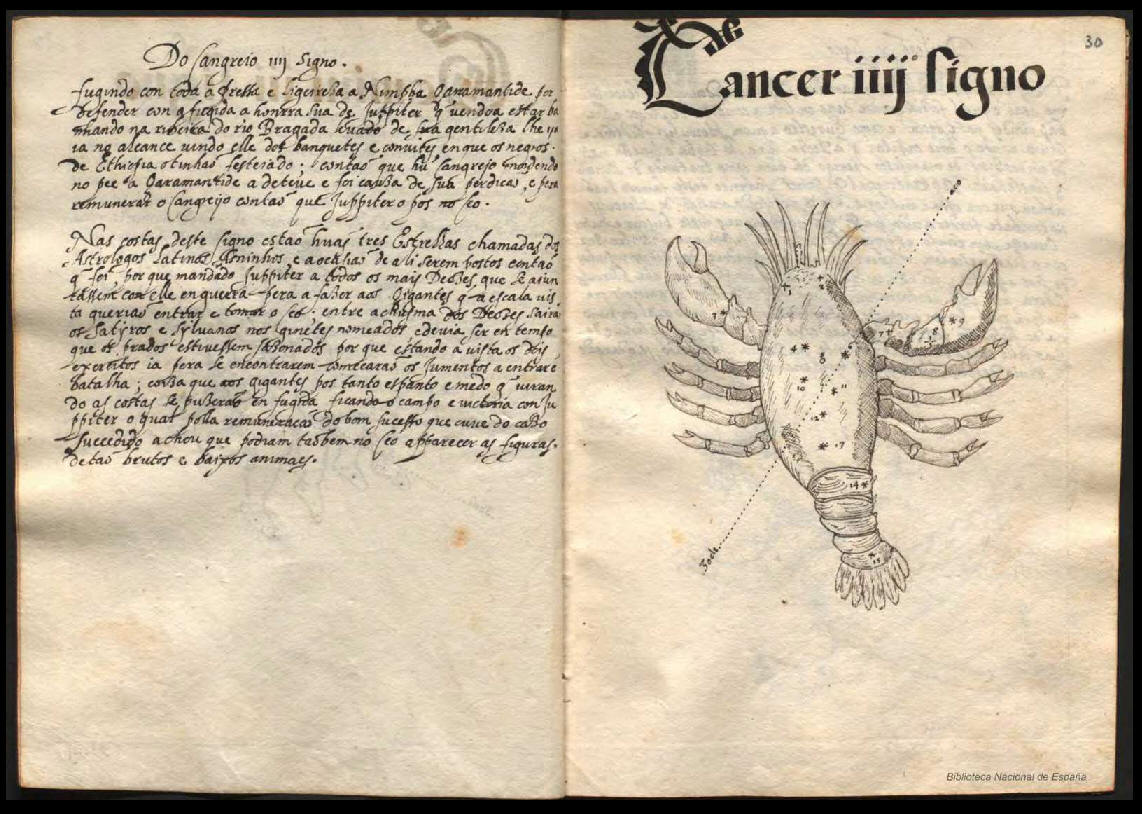 Do Cangreio iiij Signo.
fugindo con toda a pressa e ligeireza a Nimpha Garamantide por
defender con a fugida a honrra sua de Juppiter q vendoa estar ba
nhando na ribeira do rio Bragada levado de sua gentileza lhe ya
ia no alcance vindo elle dos banquetes e convites en que os negros.
de Ethiopia o tinhaõ festeiado: contaõ que hũ Cangrejo mordendo
no pee a Garamantide a deteve e foi causa de sua perdicaõ, e pera
remunerar o Cangreijo contaõ que Juppiter o pos no Ceo.
Nas costas deste signo estaõ huas tres Estrellas chamadas dos
Astrologos Latinos Asninhos, e a ocasiaõ de ali serem postos contaõ
q foi por que mandãdo Juppiter a todos os mais Deoses que se ajun
tassem con elle en guerra pera a fazer aos Gigantes q a escala vis
ta queriaõ entrar e tomar o Ceo. entre a chusma dos Deoses
os Satyros e Sylvanos nos ginetes nomeados e devia ser en tempo
que os prados estivessem sazonados por que estando a vista os dous
exercitos ia pera se encontrarem comecaraõ os Jumentos a entrar e
batalha; cousa que aos gigantes pos tanto espanto e medo q viran
do as costas se puseraõ en fugida ficando o campo e victoria con Ju
ppiter o qual polla remuneracaõ do bom sucesso que teve do caso
succedido achou que podiam tanbem no Ceo apparecer as figuras.
de taõ brutos e baixos animaes.
30
Cancer iiij Signo
7
9
8
7
4
10
11
17
14
Biblioteca Nacional de España